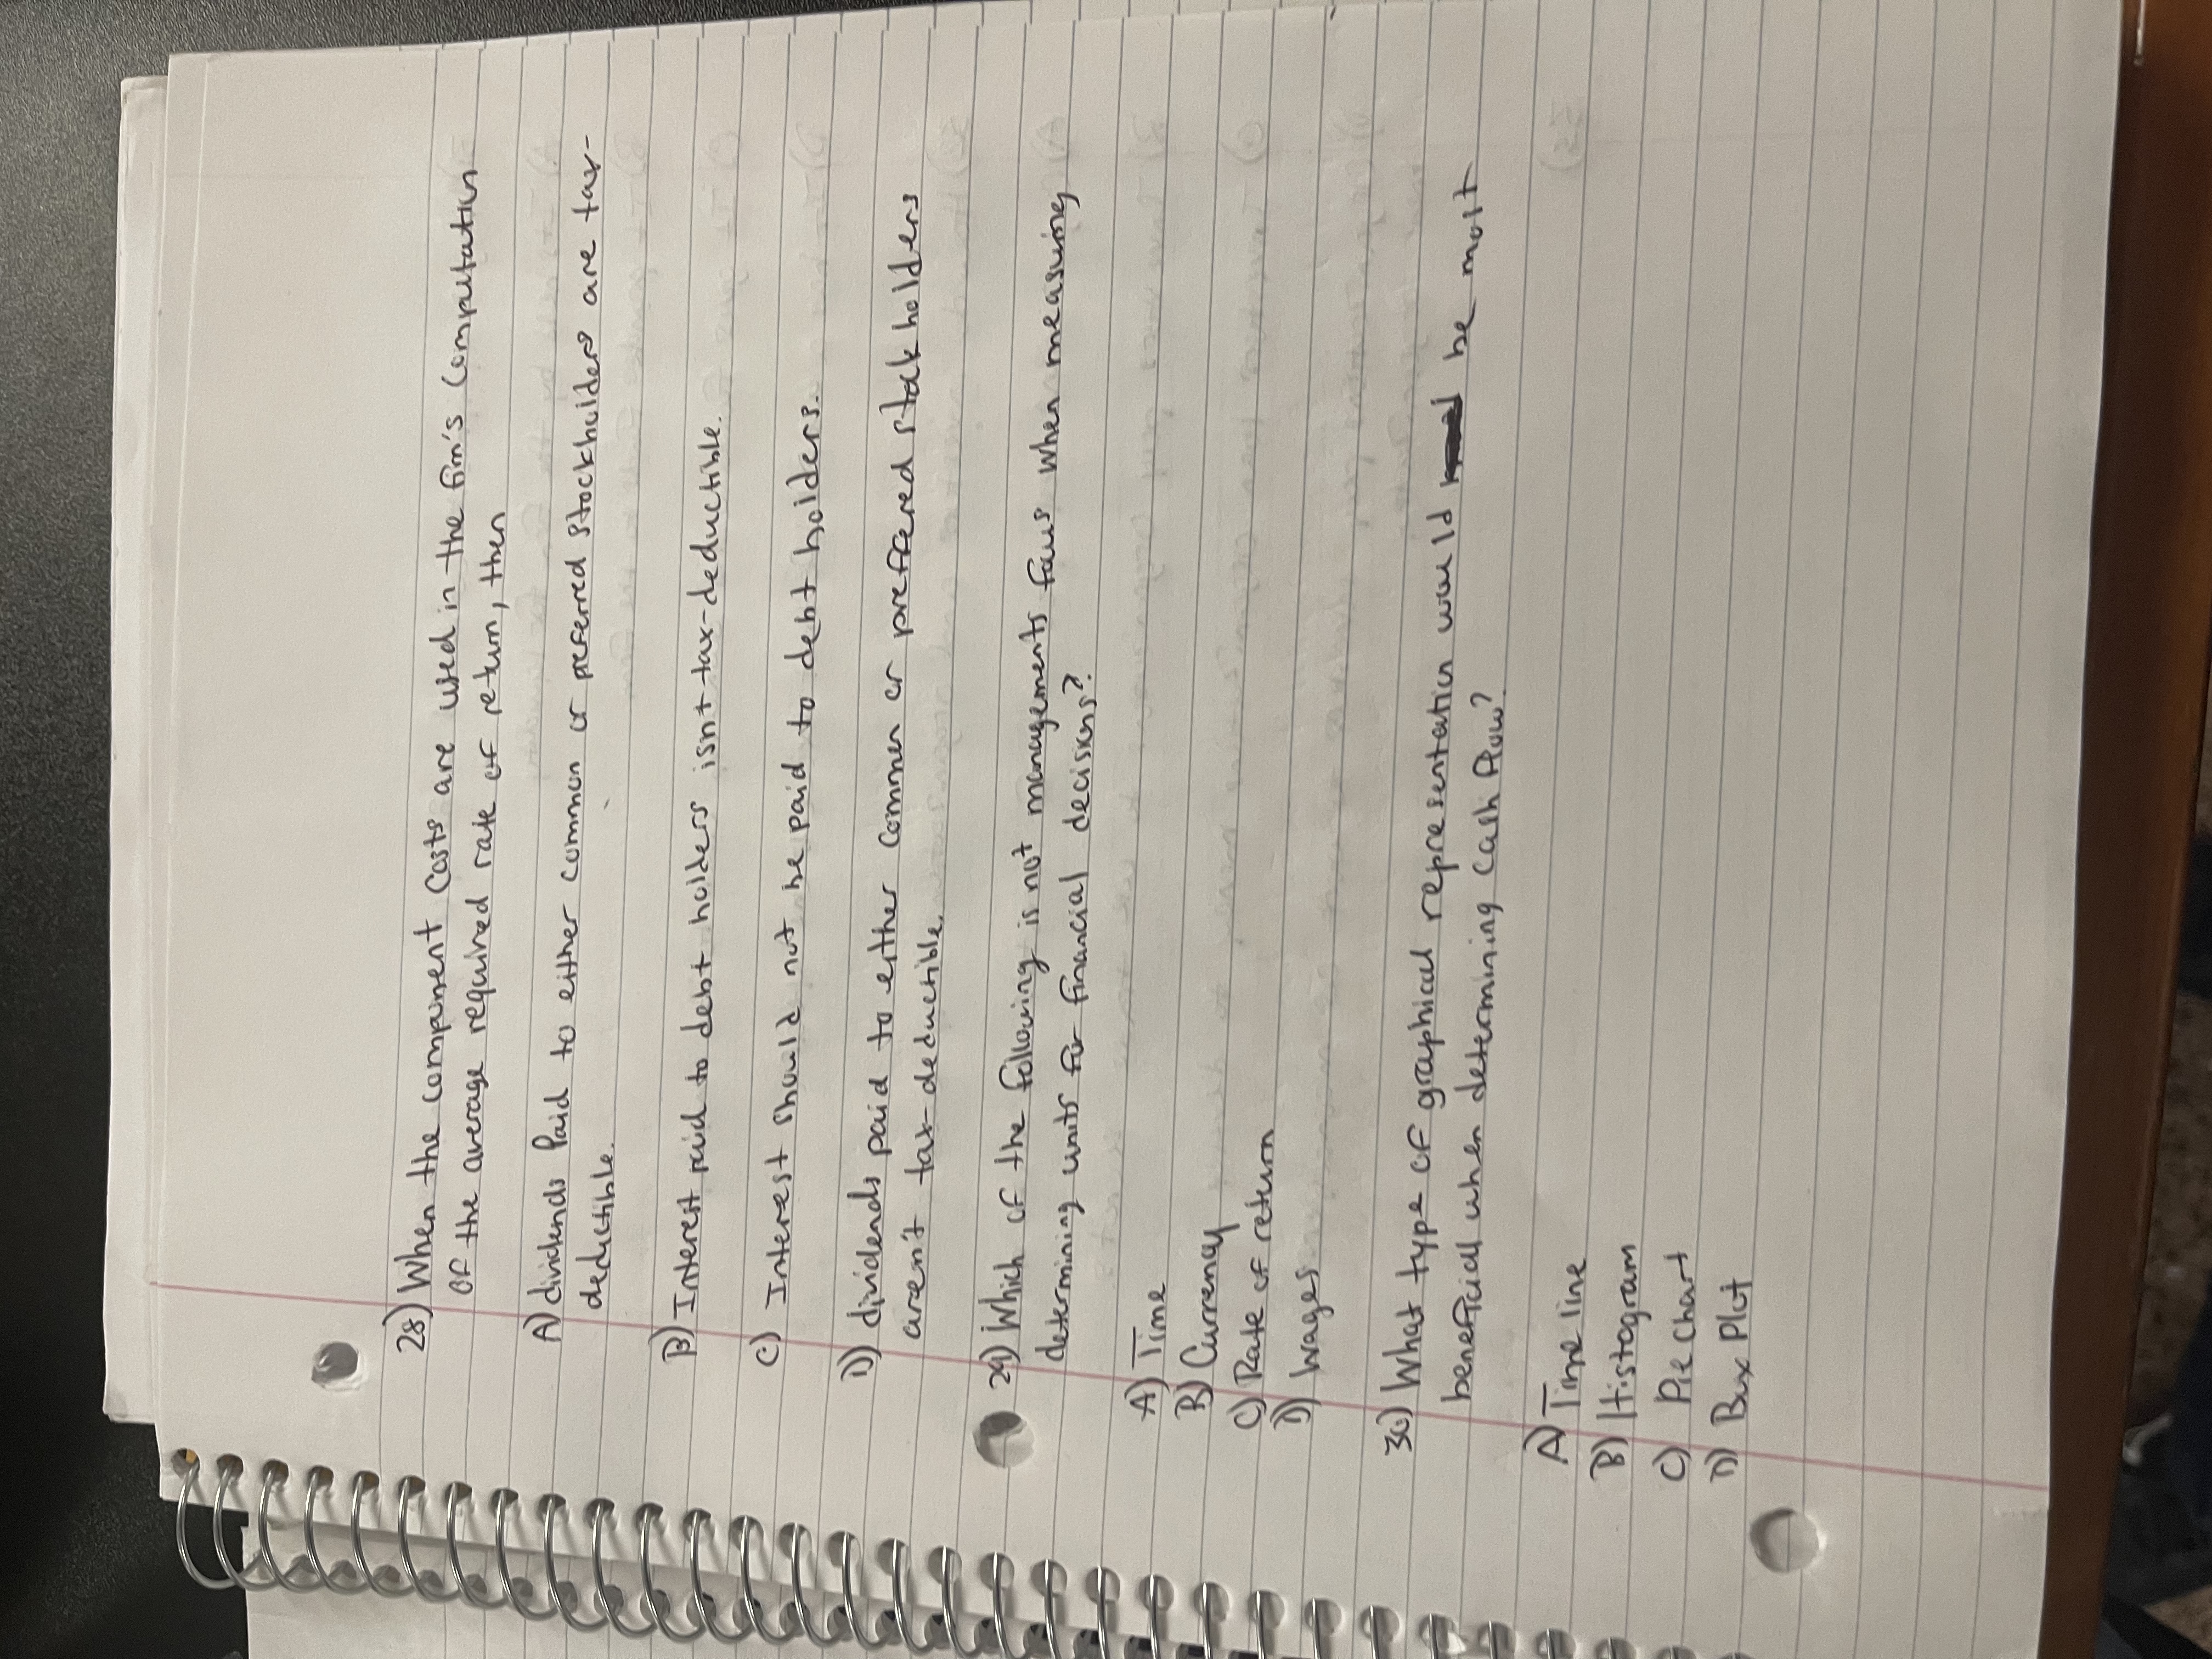 28) When the component costs are used in the firm's computation
of the average required rate of return, then
A) dividends Paid to either common or preferred stockholders are tax-
deductible.
B) Interest paid to debt holders isn't tax-deductible.
C) Interest should not be paid to debt holders.
D) dividends paid to either common or preffered stockholders
aren't tax-deductible.
29) Which of the following is not managements focus when measuring
determining units for financial decisions?
A) Time
B) Currency
C) Rate of return
D) Wages
30) What type of graphical representation would be most
beneficial when determining cash flow?
A) Time line
B) Histogram
C) Pie Chart
D) Box Plot